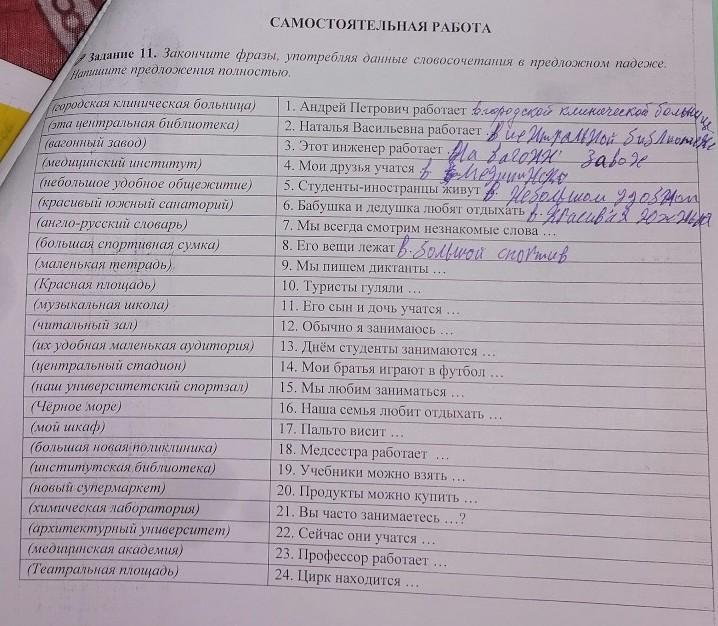 САМОСТОЯТЕЛЬНАЯ РАБОТА
Задание 11. Закончите фразы, употребляя данные словосочетания в предложном падеже.
Напишите предложения полностью.
(городская клиническая больница) 1. Андрей Петрович работает в городской клинической больниц
(эта центральная библиотека) 2. Наталья Васильевна работает в центральной библиотеке
(вагонный завод) 3. Этот инженер работает на вагон завон
(медицинский институт) 4. Мои друзья учатся в
(небольшое удобное общежитие) 5. Студенты-иностранцы живут в небольшом удобном
(красивый южный санаторий) 6. Бабушка и дедушка любят отдыхать в
(англо-русский словарь) 7. Мы всегда смотрим незнакомые слова ...
(большая спортивная сумка) 8. Его вещи лежат в большой спортив
(маленькая тетрадь) 9. Мы пишем диктанты ...
(Красная площадь) 10. Туристы гуляли ...
(музыкальная школа) 11. Его сын и дочь учатся ...
(читальный зал) 12. Обычно я занимаюсь ...
(их удобная маленькая аудитория) 13. Днём студенты занимаются ...
(центральный стадион) 14. Мои братья играют в футбол ...
(наш университетский спортзал) 15. Мы любим заниматься ...
(Чёрное море) 16. Наша семья любит отдыхать ...
(мой шкаф) 17. Пальто висит ...
(большая новая поликлиника) 18. Медсестра работает ...
(институтская библиотека) 19. Учебники можно взять ...
(новый супермаркет) 20. Продукты можно купить ...
(химическая лаборатория) 21. Вы часто занимаетесь ...?
(архитектурный университет) 22. Сейчас они учатся ...
(медицинская академия) 23. Профессор работает ...
(Театральная площадь) 24. Цирк находится ...